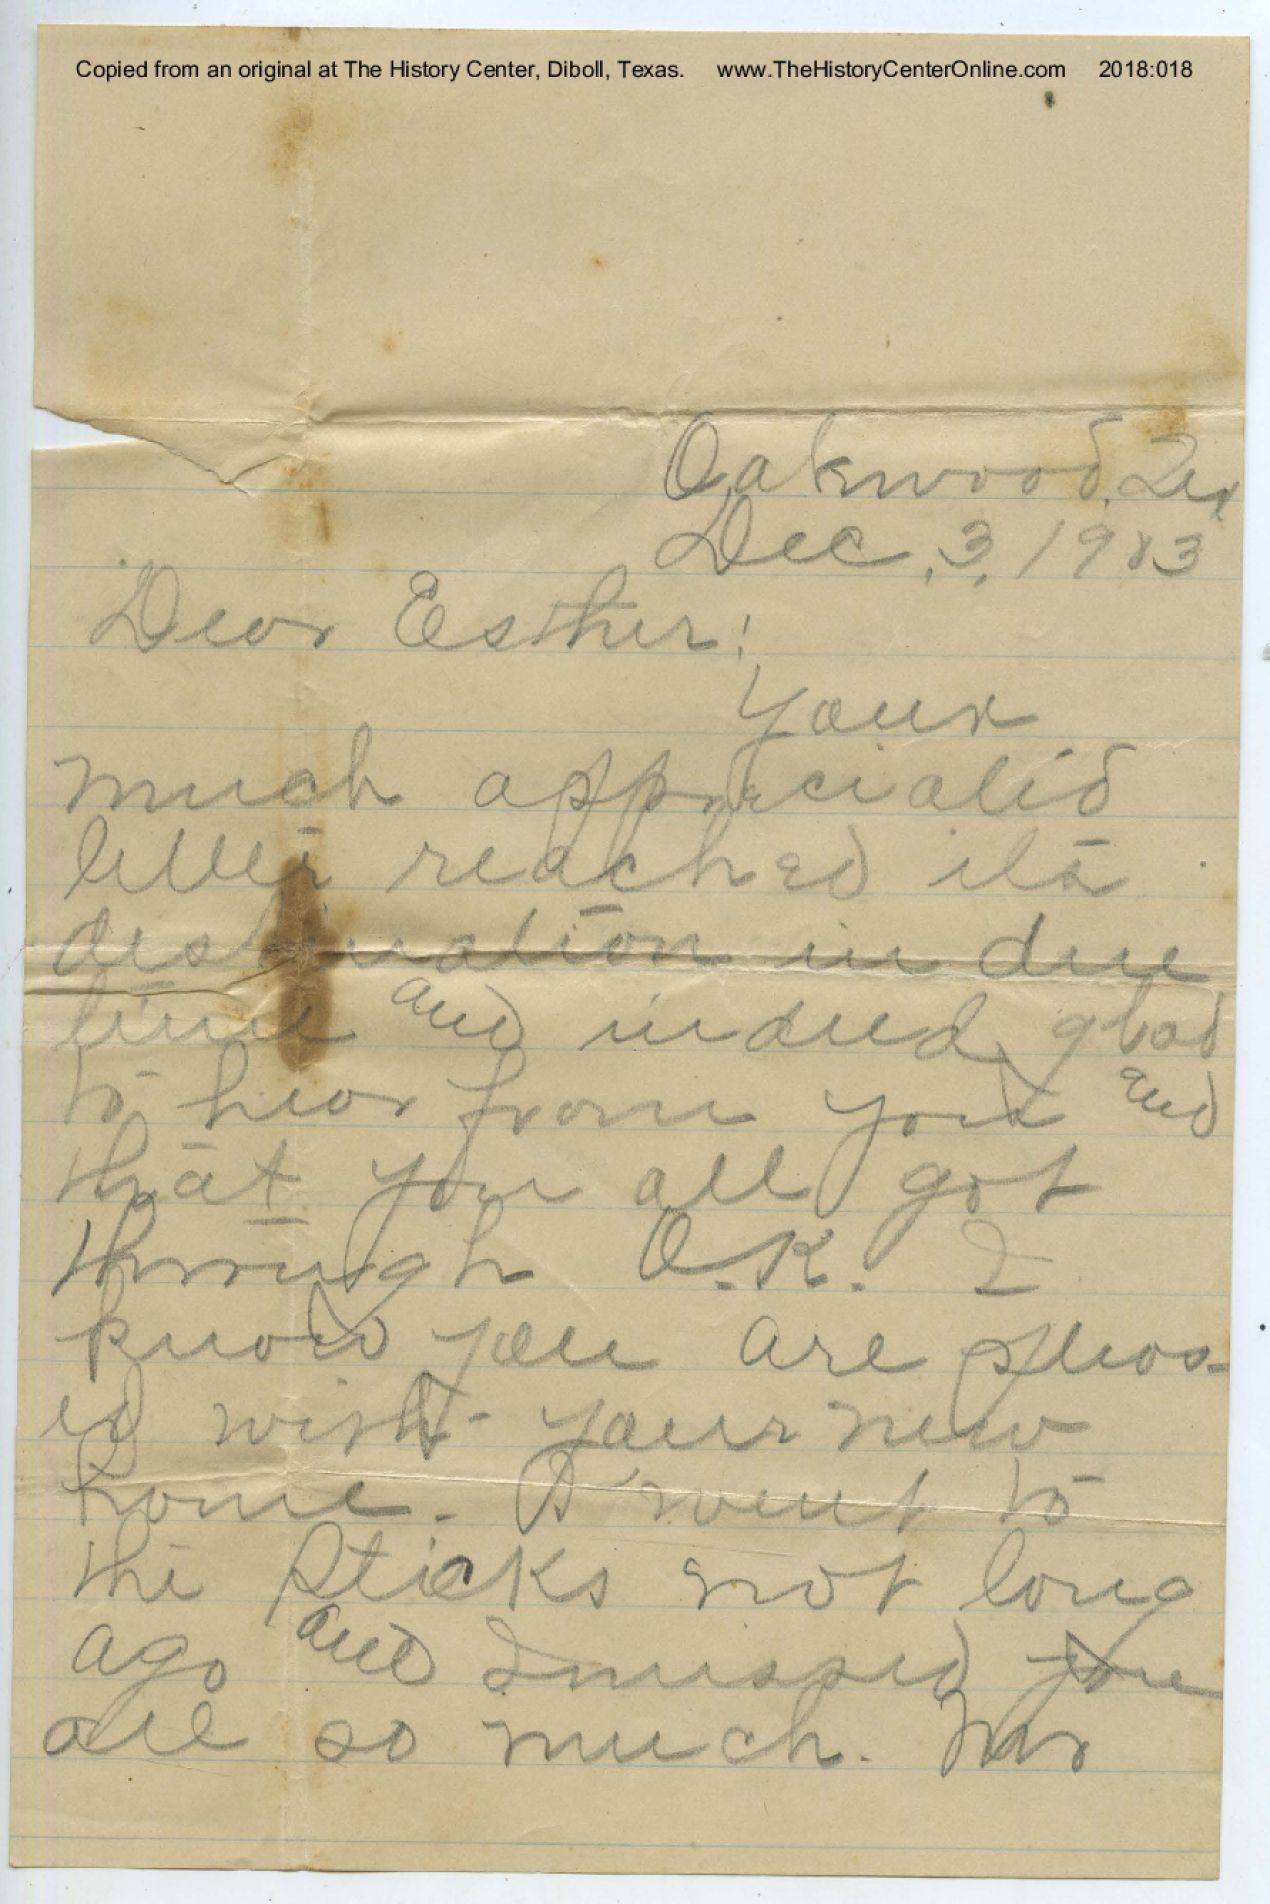 Copied from an original at The History Center, Diboll, Texas. www.TheHistoryCenterOnline.com 2018:018
Oakwood, Tex
Dec, 3, 1913
Dear Esther:
Your
much appreciated
letter reached its
destination in due
time and indeed glad
to hear from you and
that you all got
through O.K. I
know you are pleas-
ed with your new
home. I went to
the Sticks not long
ago and I missed you
all so much. Mr